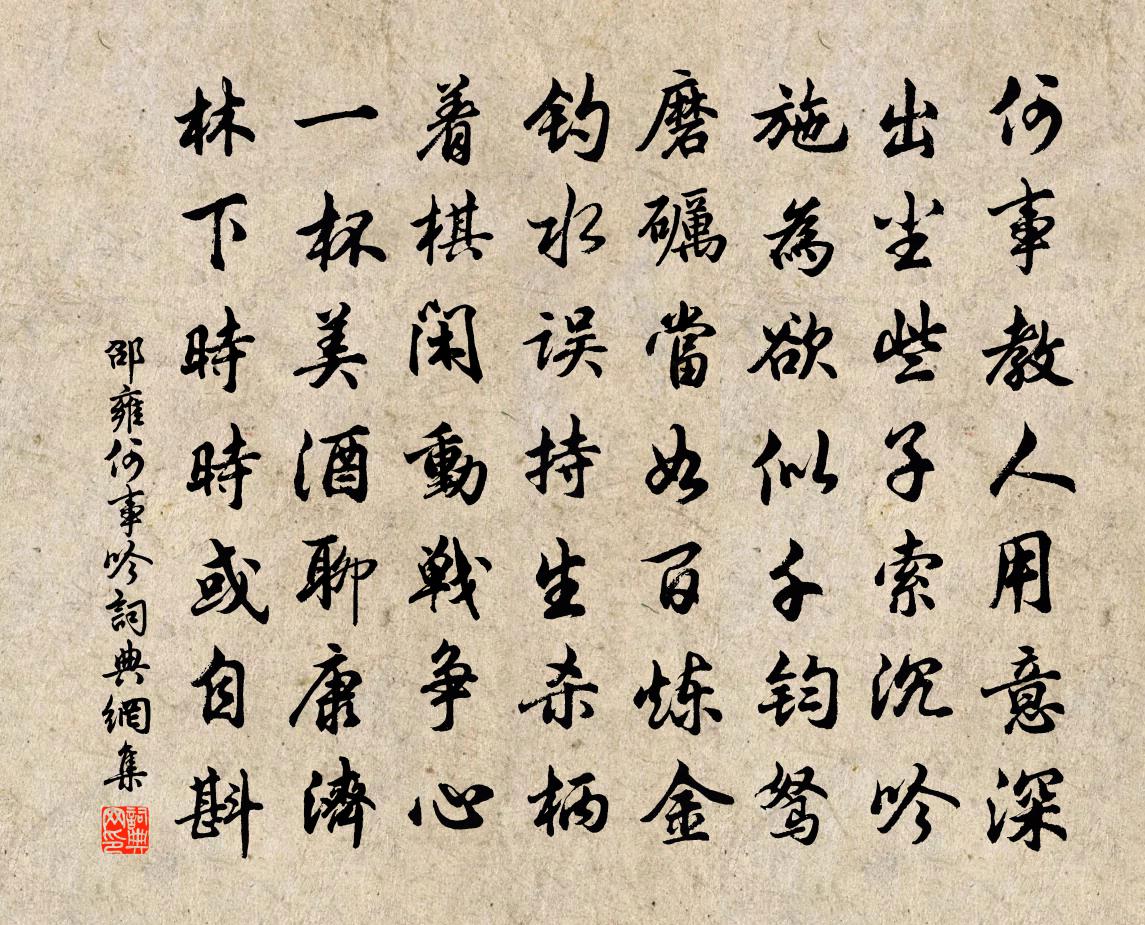 何事教人用意深
出尘些子索沉吟
施為欲似千钧驽
磨礪當如百炼金
钓水误持生杀柄
着棋闲動戦争心
一杯美酒聊康濟
林下時時或自斟
邵雍何事吟詞典網集
詞典网印